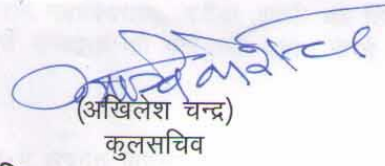 (अखिलेश चन्द्र)
कुलसचिव